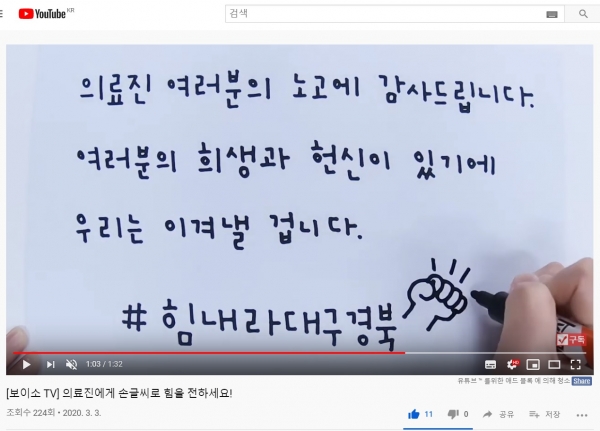 YouTube KR
검색
의료진 여러분의 노고에 감사드립니다.
여러분의 희생과 헌신이 있기에
우리는 이겨낼 겁니다.
#힘내라대구경북
구독
1:03 / 1:32
HD
유튜브 ™ 를위한 애드 블록 에 의해 청소 Design
[보이소 TV] 의료진에게 손글씨로 힘을 전하세요!
조회수 224회 • 2020. 3. 3.
11 0 공유 저장